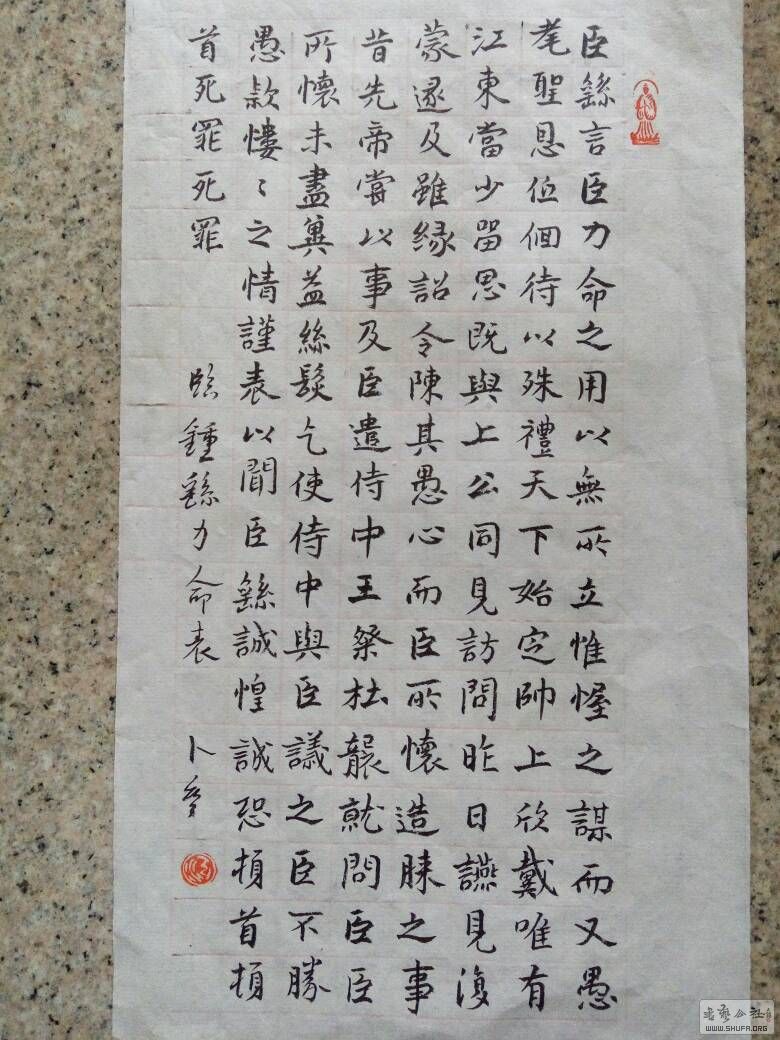 臣繇言臣力命之用以無所立惟幄之謀而又愚
耄聖恩低佪待以殊禮天下始定帥上欣戴唯有
江東當少留思既與上公同見訪問昨日讌見復
蒙逮及雖緣詔令陳其愚心而臣所懷造膝之事
昔先帝嘗以事及臣遣侍中王粲杜襲就問臣臣
所懷未盡冀益絲髮乞使侍中與臣議之臣不勝
愚款慺〻之情謹表以聞臣繇誠惶誠恐頓首頓
首死罪死罪 臨鍾繇力命表 卜
書藝公社
WWW.SHUFA.ORG